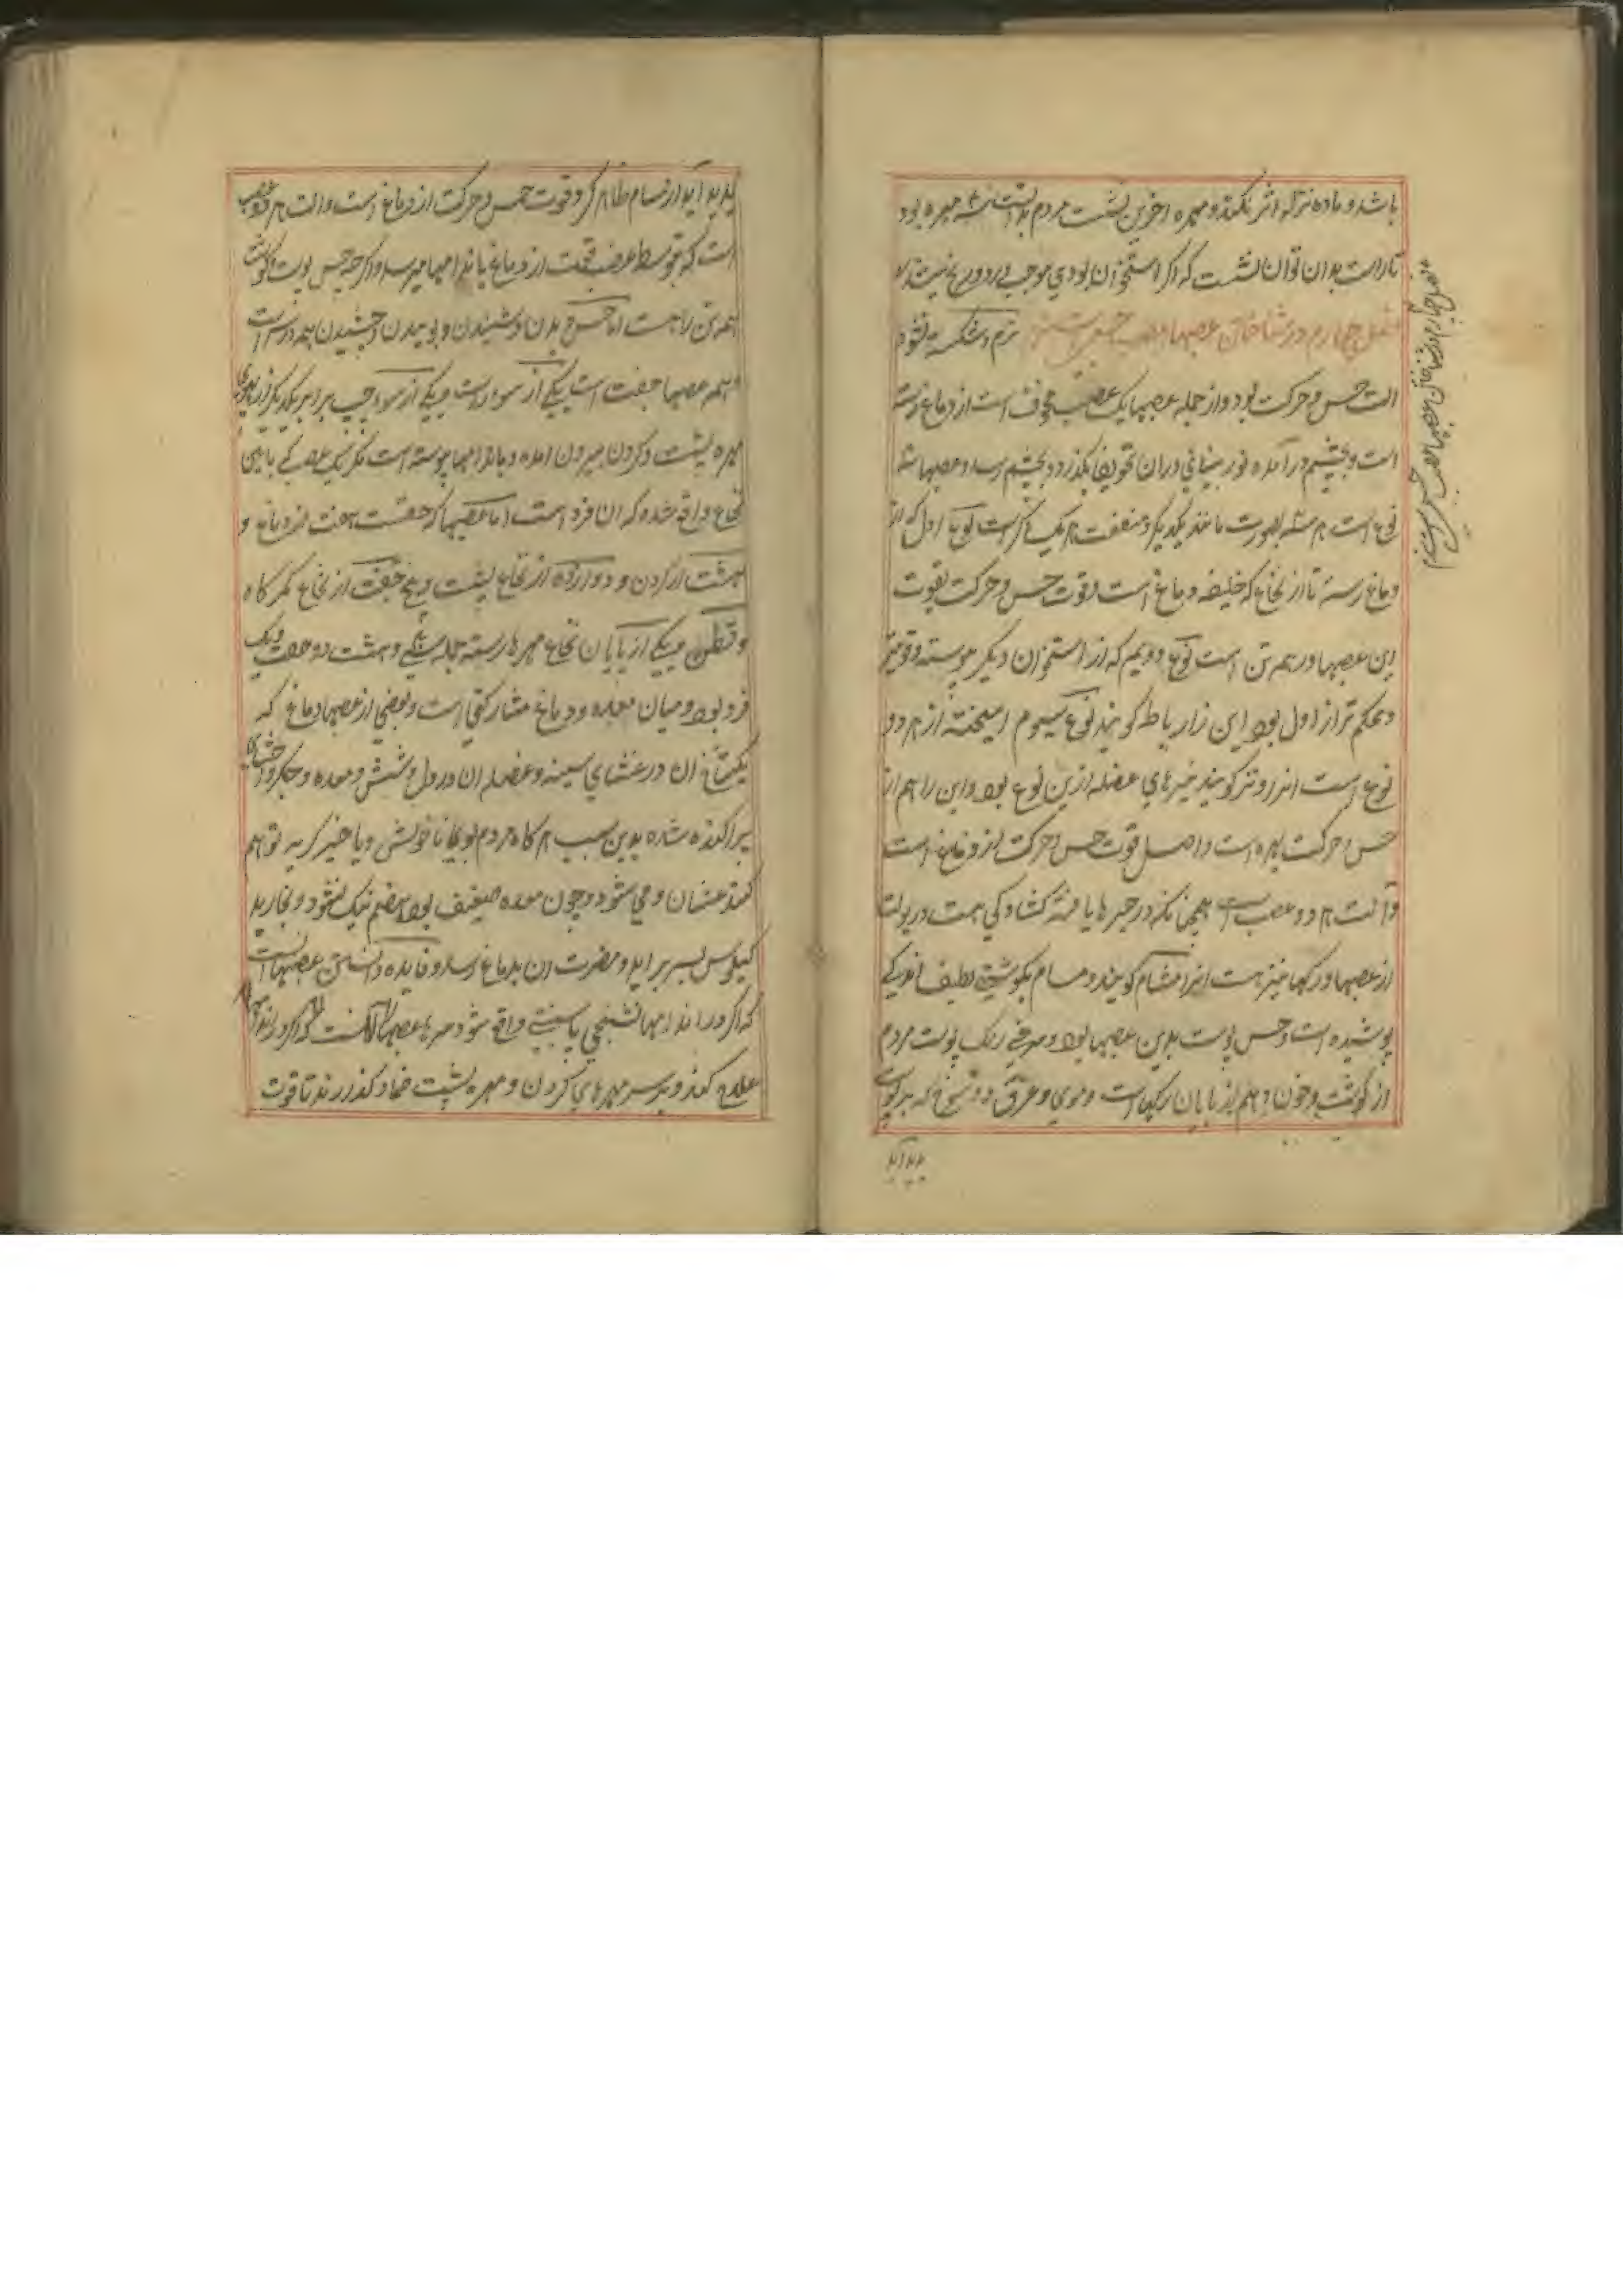 باشد و ماده نزله اثر نکند و مهره آخرین پشت مردم مهره بود
تا راست بدان توان نشست که اگر استخوان بودی موجب درد و رنج
فصل چهارم در شناختن عصبها نرم و شکسته نشود
الت حس و حرکت بود و از جمله عصبها یک عصب مجوف است از دماغ رسته
است و بچشم در آمده نور بینائی در ان تجویف بگذرد و بچشم رسد و عصبها سه
نوع است هر سه بصورت مانند یکدیگر و منفعت هر یک دیگر است نوع اول که از
دماغ رسته تا از نخاع که خلیفه دماغ است و قوت حس و حرکت بقوت
این عصبها در همه تن است نوع دویم که از استخوان دیگر پیوسته و قوی‌تر
و محکم تر از اول بود این را رباط گویند نوع سیوم امیخته از هر دو
نوع است انرا وتر گویند عضله ازین نوع بود و این را هم از
حس و حرکت بهره است و اصل قوت حس و حرکت از دماغ است
و الت هر دو عصب است همچنانکه در کشادگی هست در پوست
از عصبها و رگها نیز هست انرا مسام گویند و مسام بگوشتی لطیف اندکی
پوشیده است و حس پوست بدین عصبها بود و سرخی رنگ پوست مردم
از گوشت و خون و هم از پایان رگهاست و موی و عرق و شوخ که بر پوست
پدید آید
پدید آید از مسام ظاهر گردد و قوت حس و حرکت از دماغ است و الت هر دو عصب
است که بتوسط عصب قوت از دماغ باندامها میرسد و اگرچه حس پوست و گوشت
همه تن را هست اما حس دیدن و شنیدن و بوییدن و چشیدن همه در سر است
و همه عصبها جفت است یکی از سوی راست و یکی از سوی چپ برابر یکدیگر از
مهره پشت و گردن بیرون امده و باندامها پیوسته است مگر یک عصب که بپایین
نخاع واقع شده که ان فرد است اما عصبها که جفتست هفت از دماغ و
هشت از گردن و دوازده از نخاع پشت و پنج جفت از نخاع کمرگاه
و قطن و یکی از پایان نخاع مهرها رسته جمله سی و هشت جفت و یک
فرد بود و میان معده و دماغ مشارکتی است و بعضی از عصبهای دماغ که
یکشاخ ان در غشای سینه و عضله ان و در دل و شش و معده و جگر و احشای
پراگنده شده بدین سبب هر گاه مردم بوی ناخوش و یا چیز کریه توهم
کند غشیان و قی شود و چون معده ضعیف بود هضم نیک نشود و بخار بد
کیلوس بسر بر اید و مضرت ان بدماغ رسد و فایده دانستن عصبها انست
که اگر در اندامها تشنجی یا سستی واقع شود
علاج کنند و بر سر مهرهای گردن و مهره پشت ضماد گذارند تا قوت